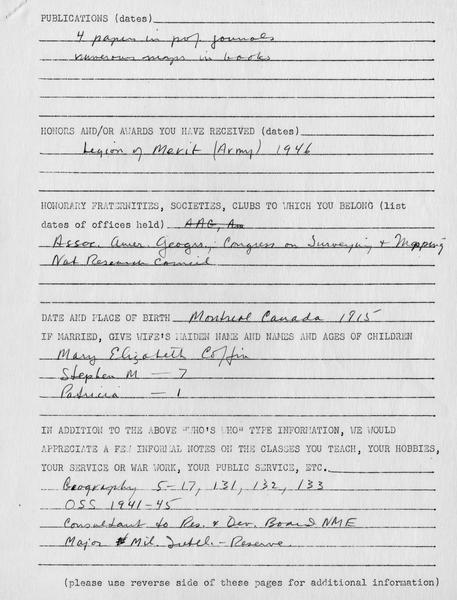 PUBLICATIONS (dates)
4 papers in prof. journals
numerous maps in books
HONORS AND/OR AWARDS YOU HAVE RECEIVED (dates)
Legion of Merit (Army) 1946
HONORARY FRATERNITIES, SOCIETIES, CLUBS TO WHICH YOU BELONG (list
dates of offices held) AAG, Am
Assoc. Amer. Geogrs.; Congress on Surveying & Mapping
Nat Research Council
DATE AND PLACE OF BIRTH Montreal Canada 1915
IF MARRIED, GIVE WIFE'S MAIDEN NAME AND NAMES AND AGES OF CHILDREN
Mary Elizabeth Coffin
Stephen M — 7
Patricia — 1
IN ADDITION TO THE ABOVE "WHO'S WHO" TYPE INFORMATION, WE WOULD
APPRECIATE A FEW INFORMAL NOTES ON THE CLASSES YOU TEACH, YOUR HOBBIES,
YOUR SERVICE OR WAR WORK, YOUR PUBLIC SERVICE, ETC.
Geography 5-17, 131, 132, 133
OSS 1941-45
Consultant to Res. & Dev. Board NME
Major Mil. Intell.- Reserve
(please use reverse side of these pages for additional information)